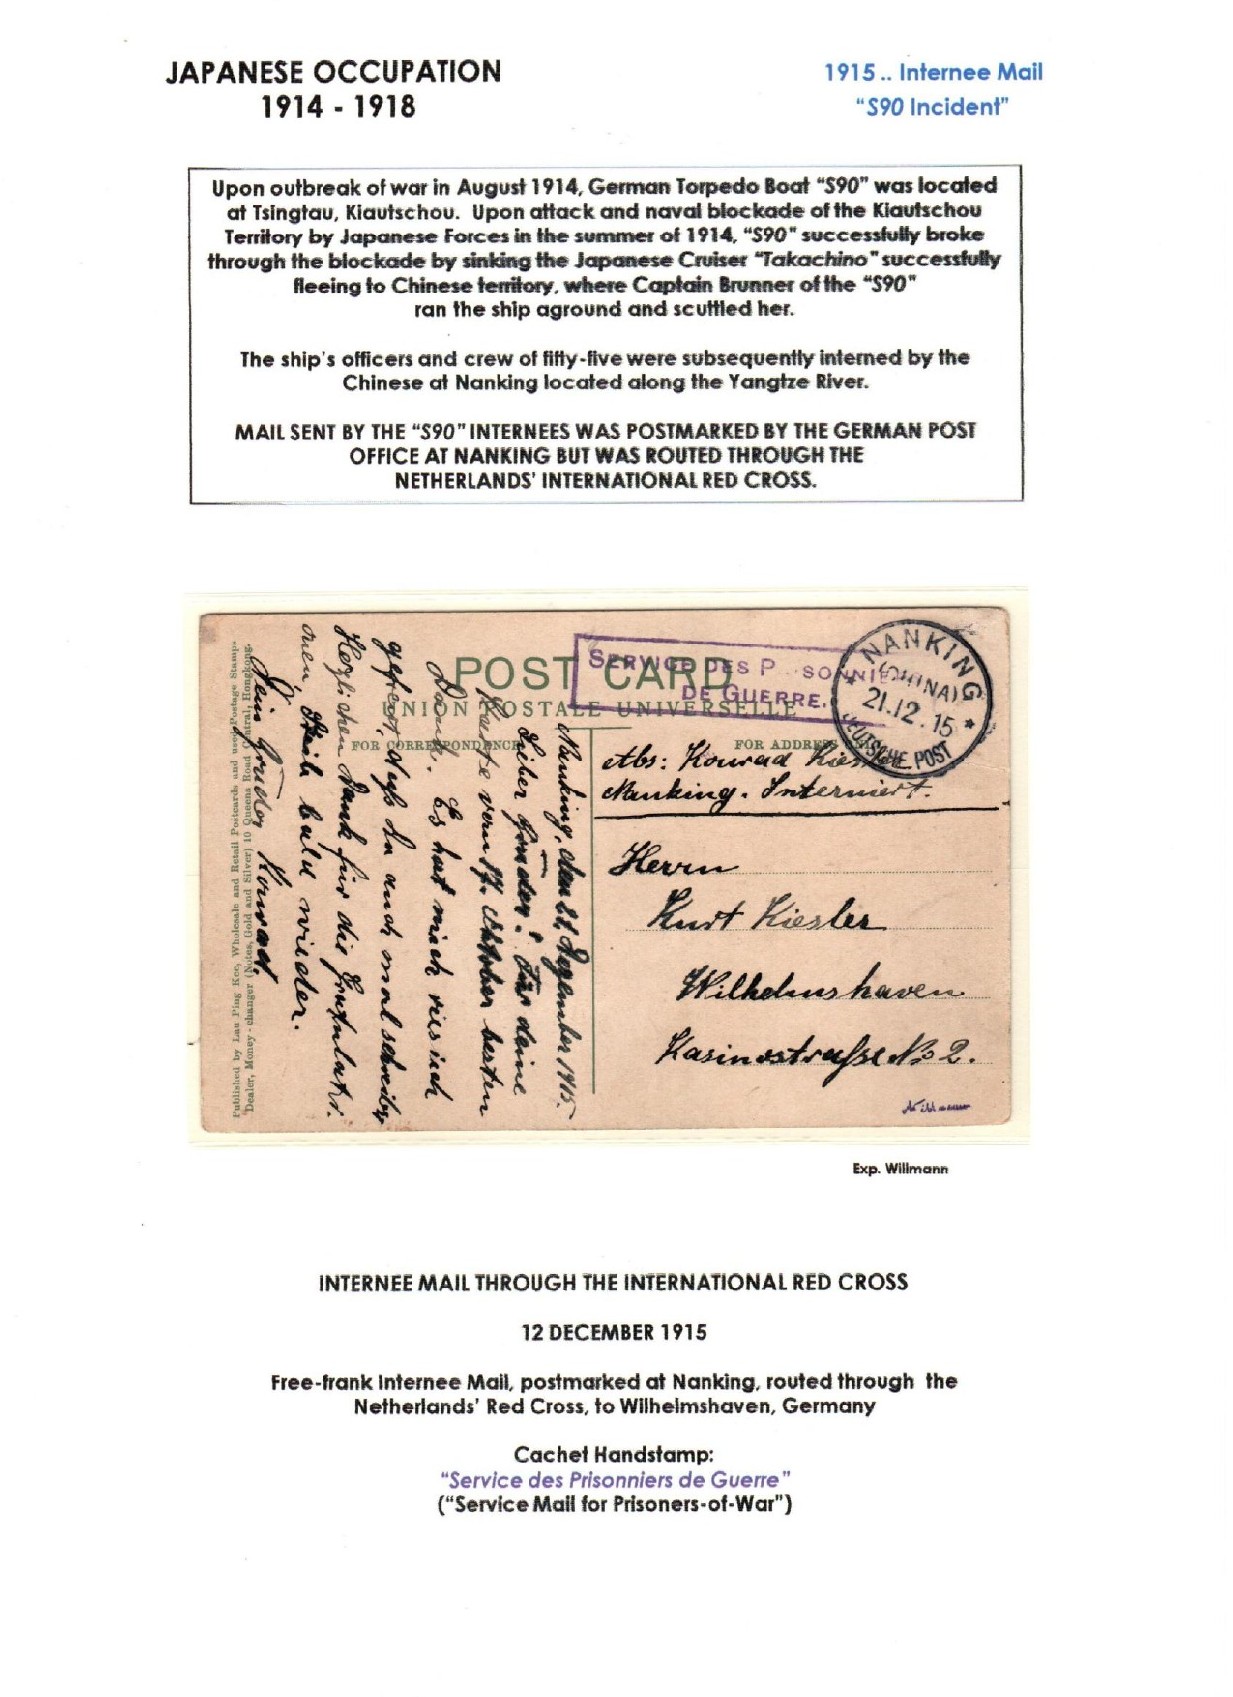 JAPANESE OCCUPATION
1914 - 1918
1915.. Internee Mail
“S90 Incident”
Upon outbreak of war in August 1914, German Torpedo Boat “S90” was located
at Tsingtau, Kiautschou. Upon attack and naval blockade of the Kiautschou
Territory by Japanese Forces in the summer of 1914, “S90” successfully broke
through the blockade by sinking the Japanese Cruiser “Takachino” successfully
fleeing to Chinese territory, where Captain Brunner of the “S90”
ran the ship aground and scuttled her.
The ship's officers and crew of fifty-five were subsequently interned by the
Chinese at Nanking located along the Yangtze River.
MAIL SENT BY THE “S90” INTERNEES WAS POSTMARKED BY THE GERMAN POST
OFFICE AT NANKING BUT WAS ROUTED THROUGH THE
NETHERLANDS' INTERNATIONAL RED CROSS.
POST CARD
UNION POSTALE UNIVERSELLE
FOR CORRESPONDENCE
FOR ADDRESS
SERVICE DES P SONNIE
DE GUERRE.
NANKING
(CHINA)
21.12.15
DEUTSCHE POST
Abs: Konrad
Nanking. Interniert.
Herrn
Kurt Kiesler
Wilhelmshaven
Kasinostraße No 2.
Nanking, den 21. Dezember 1915.
Lieber Bruder! Für deine
Karte vom 17. Oktober besten
Dank. Es hat mich riesich
gefreut, daß Du auch mal schreibst
Herzlichen Dank für die Gratulati-
onen, Schreib bald wieder.
Dein Bruder Konrad.
Published by Lau Ping Kee, Wholesale and Retail Postcards and used Postage Stamp-
Dealer, Money-changer (Notes, Gold and Silver) 10 Queens Road Central, Hongkong.
Exp. Willmann
INTERNEE MAIL THROUGH THE INTERNATIONAL RED CROSS
12 DECEMBER 1915
Free-frank Internee Mail, postmarked at Nanking, routed through the
Netherlands' Red Cross, to Wilhelmshaven, Germany
Cachet Handstamp:
“Service des Prisonniers de Guerre”
(“Service Mail for Prisoners-of-War”)